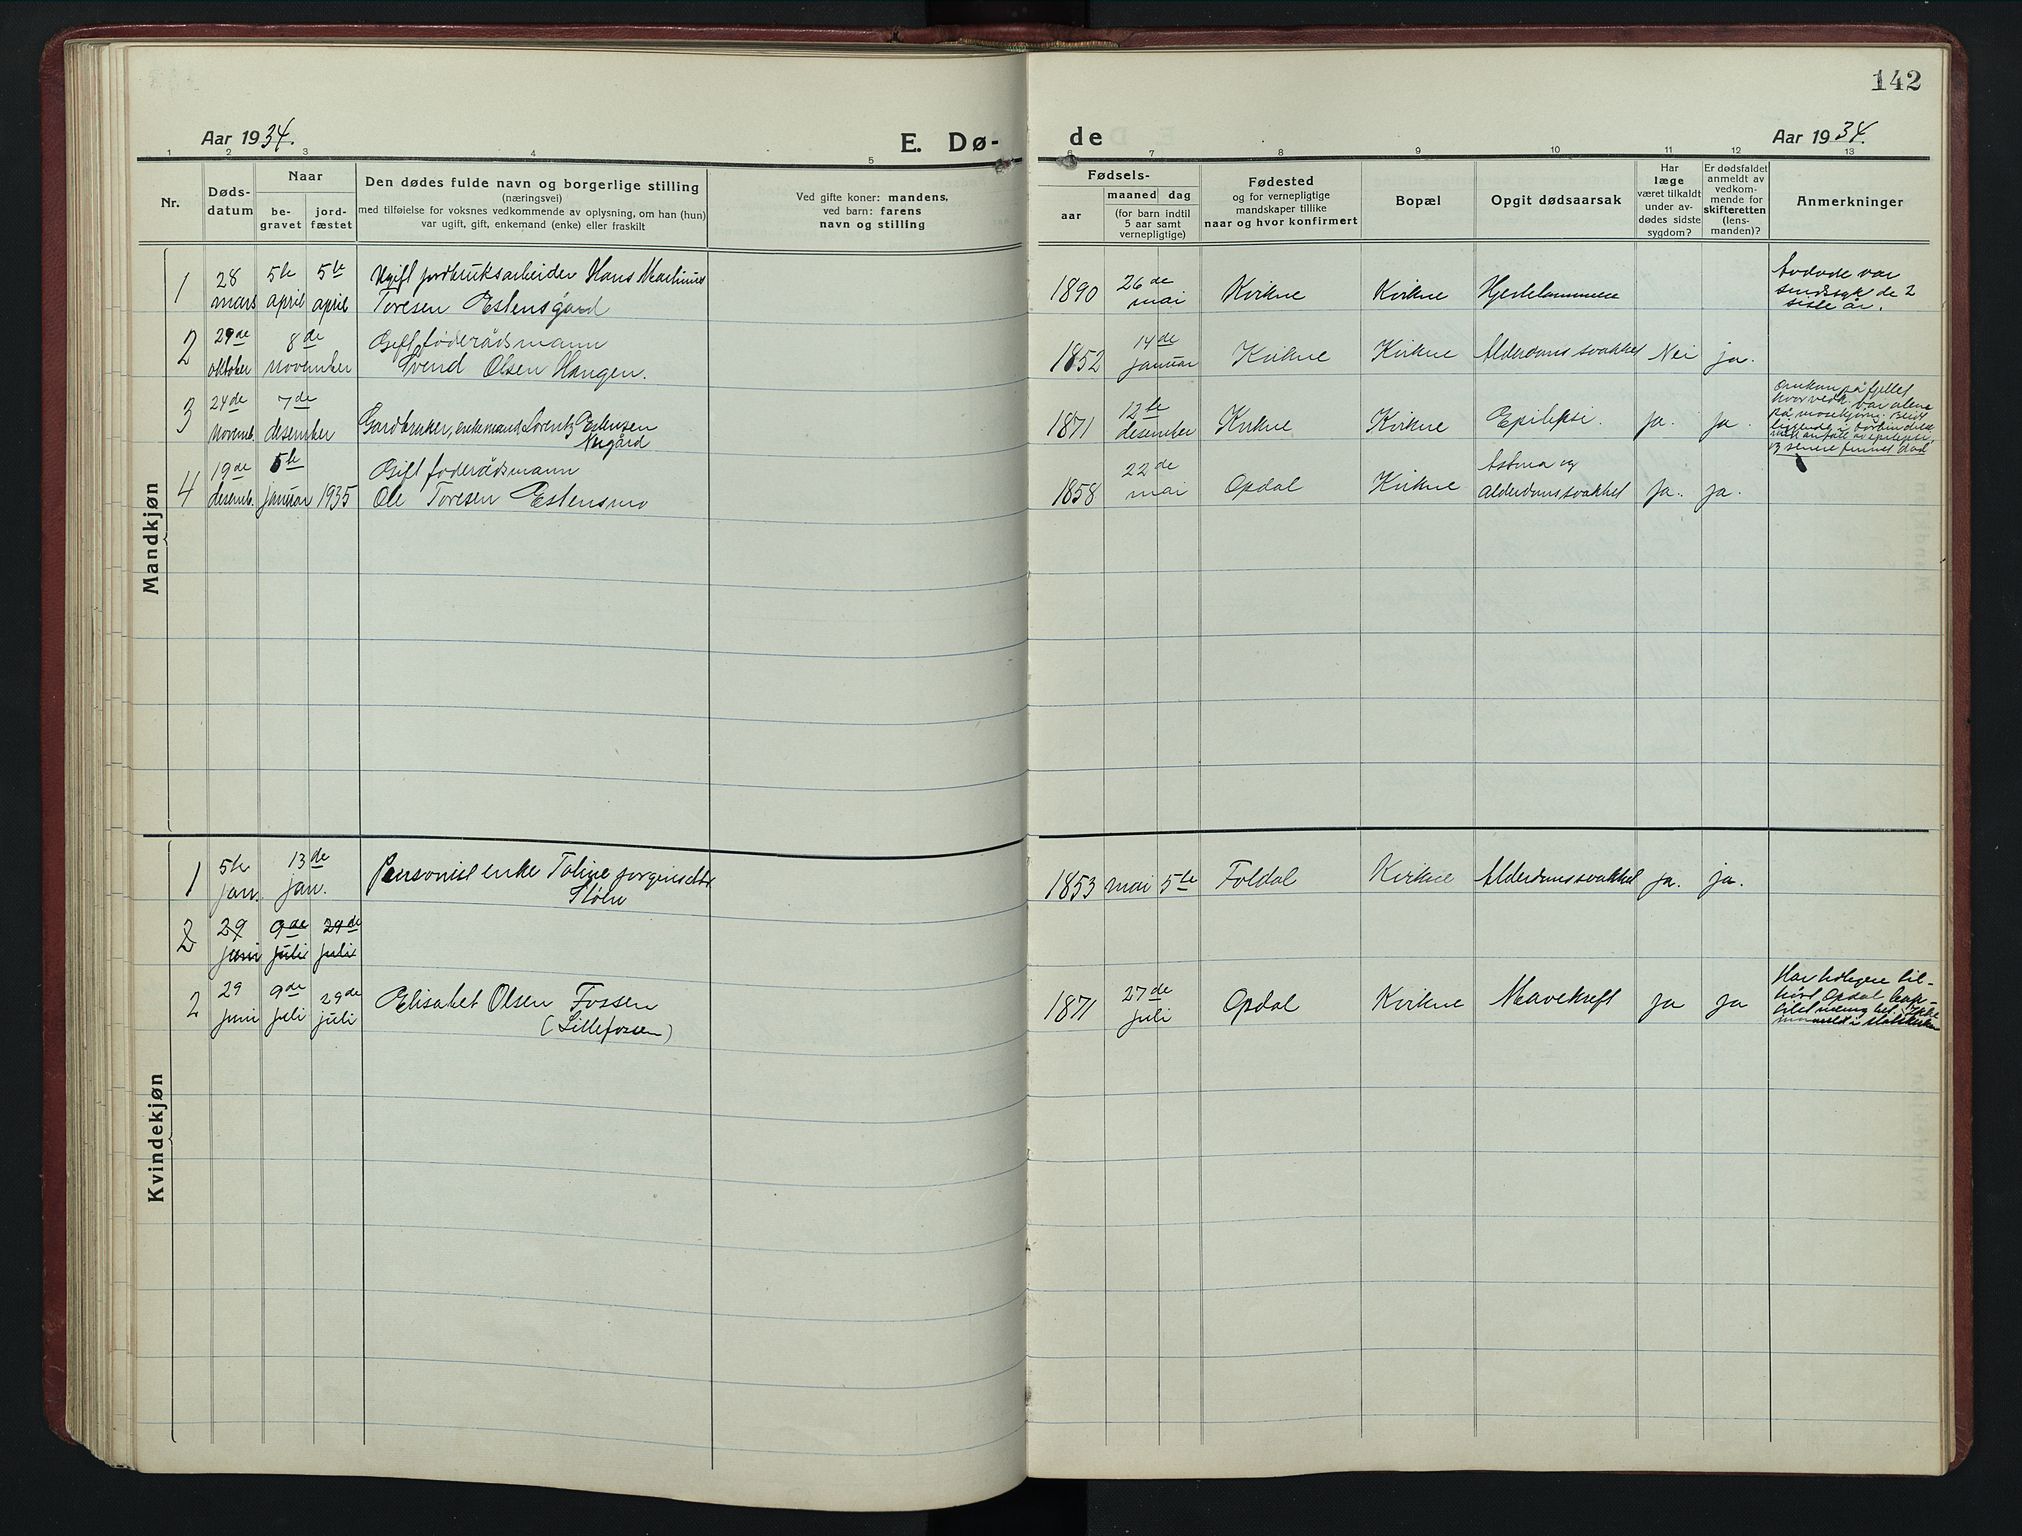 142
Aar 1934.
E. Dø-
de
Aar 1934.
1 2 3 4 5
6 7 8 9 10 11 12 13
Nr.
Døds-
datum
Naar
be-
gravet
jord-
fæstet
Den dødes fulde navn og borgerlige stilling
(næringsvei)
med tilføielse for voksnes vedkommende av oplysning, om han (hun)
var ugift, gift, enkemand (enke) eller fraskilt
Ved gifte koner: mandens,
ved barn: farens
navn og stilling
Fødsels-
aar
maaned dag
(for barn indtil
5 aar samt
vernepligtige)
Fødested
og for vernepligtige
mandskaper tillike
naar og hvor konfirmert
Bopæl
Opgit dødsaarsak
Har
læge
været tilkaldt
under av-
dødes sidste
sygdom?
Er dødsfaldet
anmeldt av
vedkom-
mende for
skifteretten
(lens-
manden)?
Anmerkninger
Mandkjøn
1 28 mars 5te april 5te april Ugift jordbruksarbeider Hans Martinus
Toresen Estensgård
1890 26de mai Kvikne Kvikne Hjertelammelse
Avdøde var
sindssyk de 2
siste år.
2 29de oktober 8de november Gift føderådsmann
Svend Olsen Haugen.
1852 14de januar Kvikne Kvikne Alderdomssvakhet Nei ja.
3 24de novemb. 7de desember Gardbruker, enkemand Lorentz Estensen
Nygård
1871 12te desember Kvikne Kvikne Epilepsi. ja. ja.
Omkom på fjellet,
hvor vedk. var alene
på mosekjøring. Blidt
liggende i
anfall av epilepsi,
og senere funnet død
4 19de desemb. 5te januar 1935 Gift føderådsmann
Ole Toresen Estensmo
1858 22de mai Opdal Kvikne Astma og
alderdomssvakhet ja. ja.
Kvindekjøn
1 5te jan. 13de jan. Pensionist enke Toline Jørgensdtr
Stølu
1853 mai 5te Foldal Kvikne Alderdomssvakhet ja. ja.
2 29 juni 9de juli 29de juli
2 29 juni 9de juli 29de juli Elisabet Olsen Fossen
(Lillefossen)
1871 27de juli Opdal Kvikne Mavekreft ja ja
Har tidligere til-
hørt Opdal bap-
tist menighet. Ikke
innmeldt i statskirken